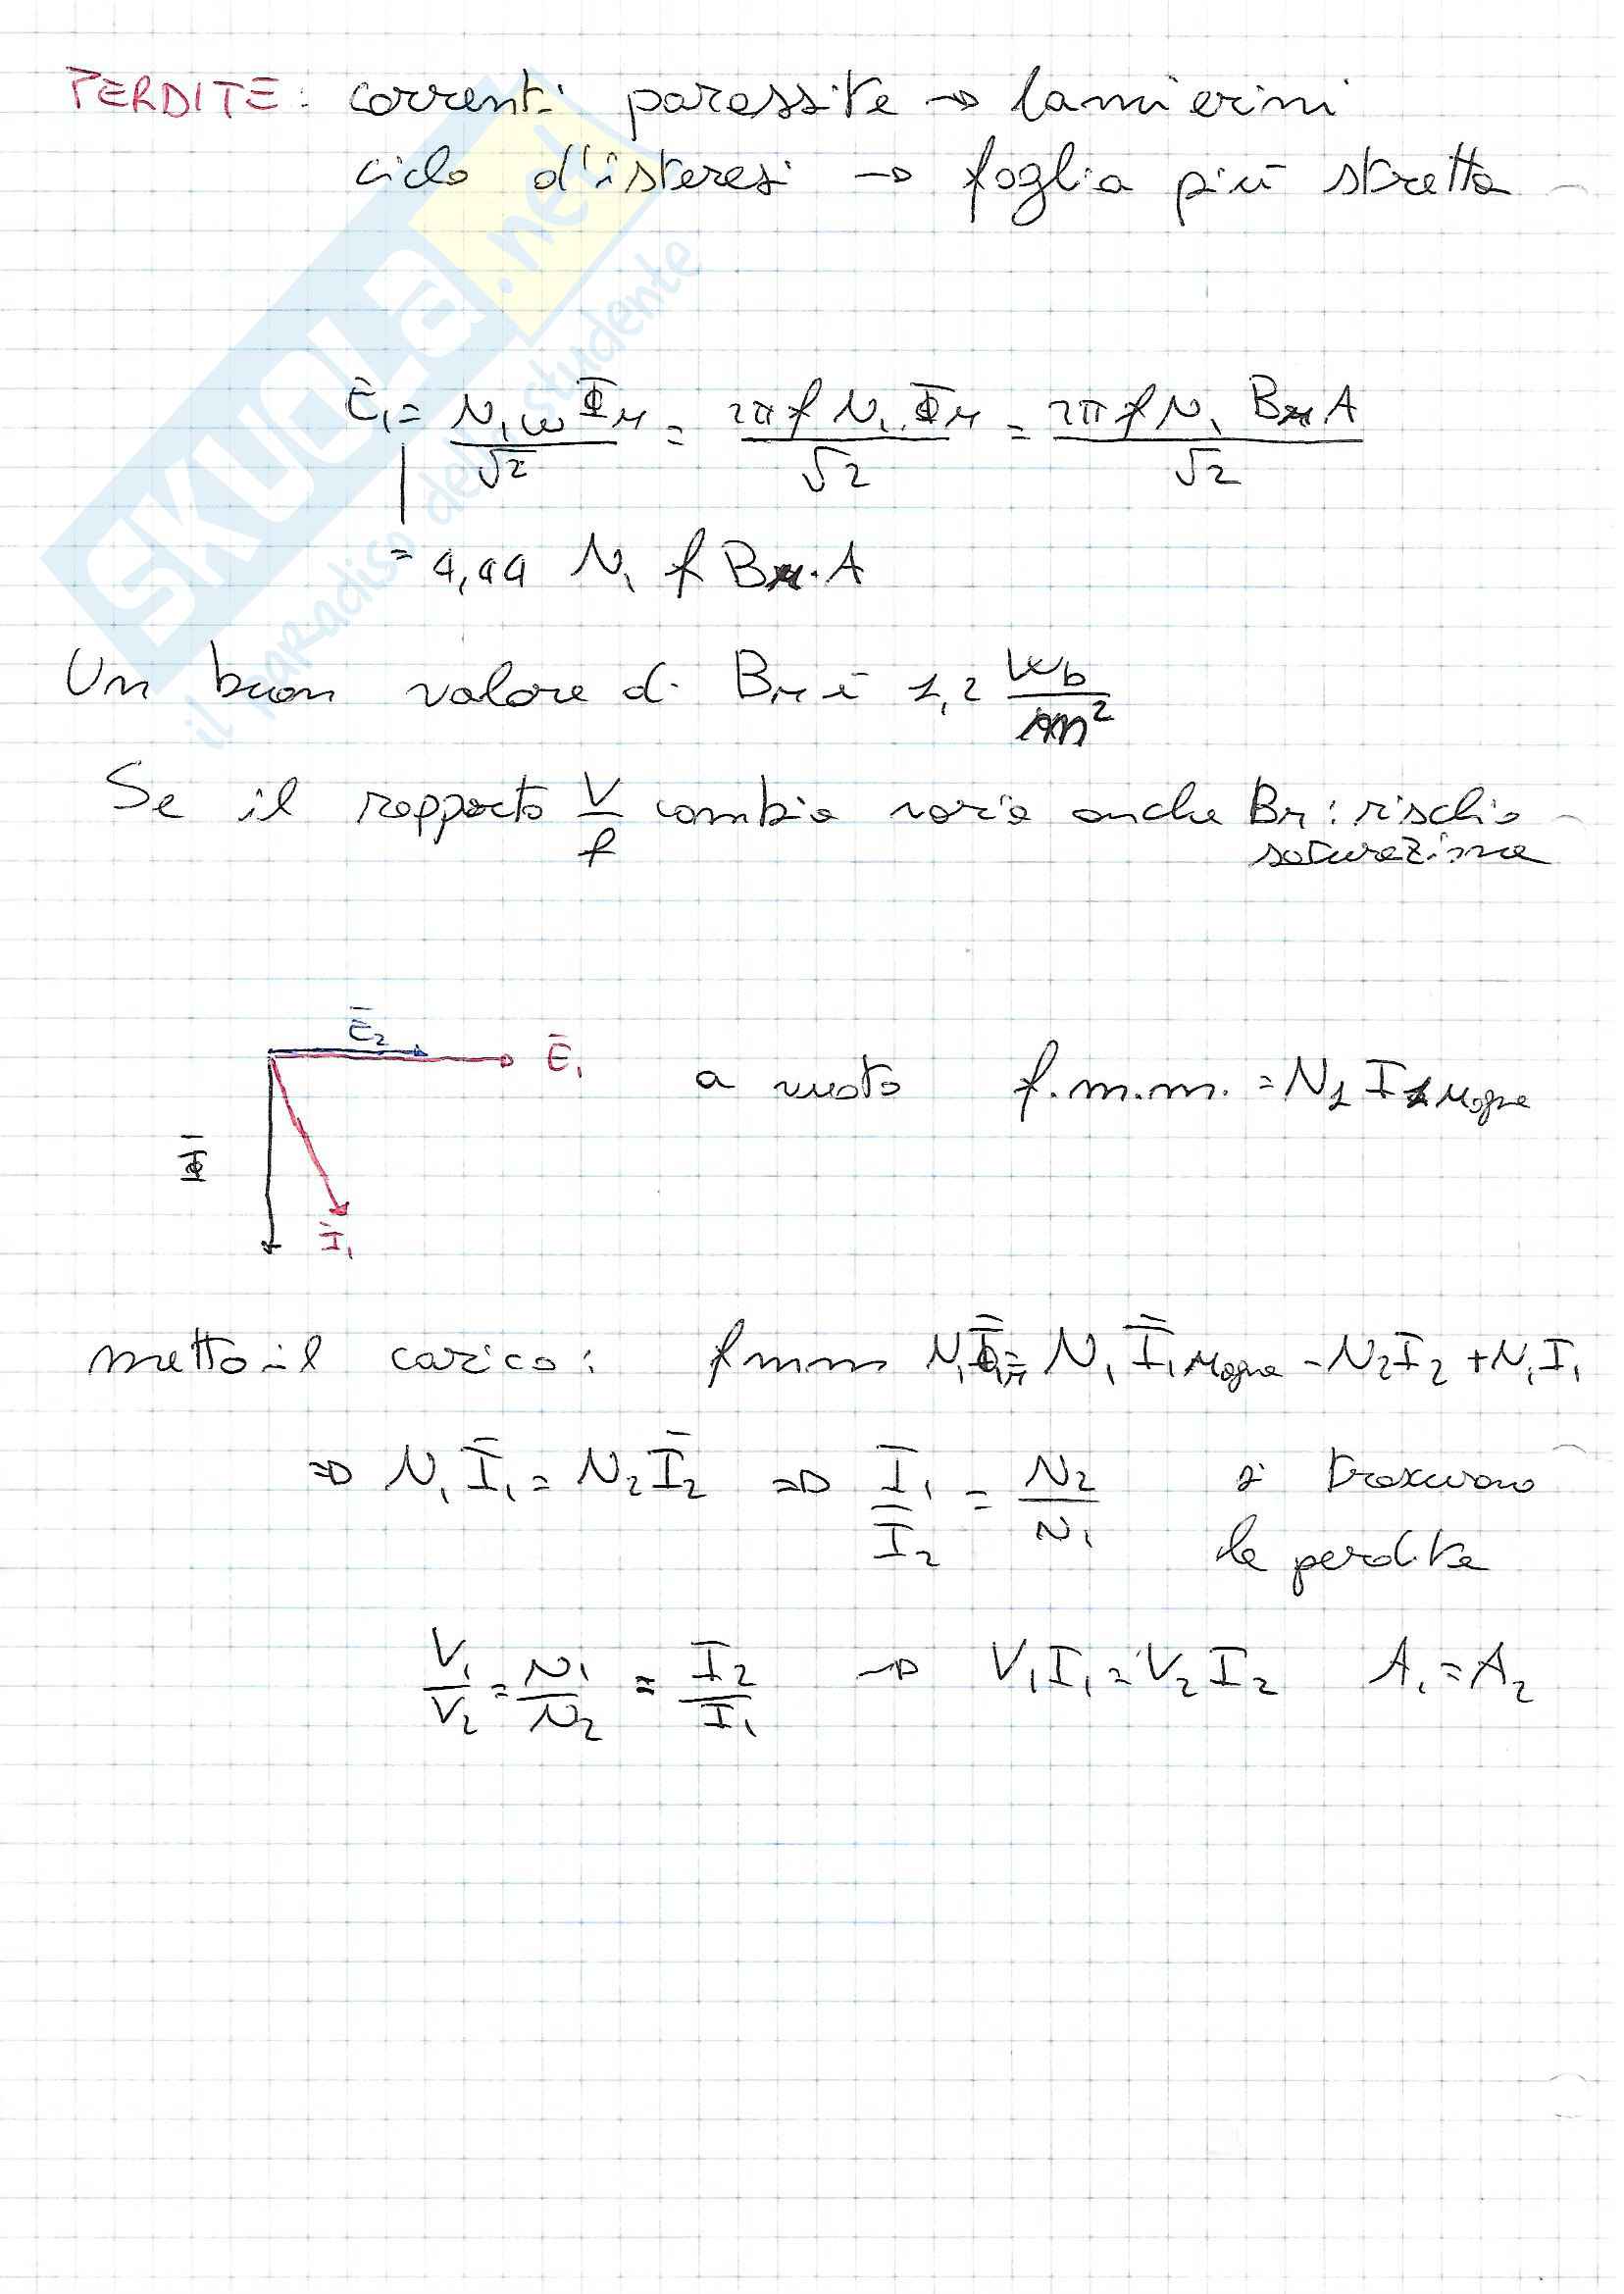 PERDITE: correnti parassite → lamierini
ciclo d'isteresi → foglia più stretta
SKUOLA.net
il paradiso dello studente
Ē₁ = N₁ω Φ_M / √2 = 2πf N₁ Φ_M / √2 = 2πf N₁ B_M A / √2
= 4,44 N₁ f B_M · A
Un buon valore di B_M è 1,2 Wb/m²
Se il rapporto V/f cambia varia anche B_M: rischio
saturazione
Ē₂
Ē₁
a vuoto f.m.m. = N₁ I₁ Magne
Φ̄
Ī₁
metto il carico: fmm = N₁ Ī₁ Magne - N₂Ī₂ + N₁I₁
⇒ N₁Ī₁ = N₂Ī₂ ⇒ Ī₁/Ī₂ = N₂/N₁ si trascurano
le perdite
V₁/V₂ = N₁/N₂ = I₂/I₁ → V₁I₁ = V₂I₂ A₁ = A₂